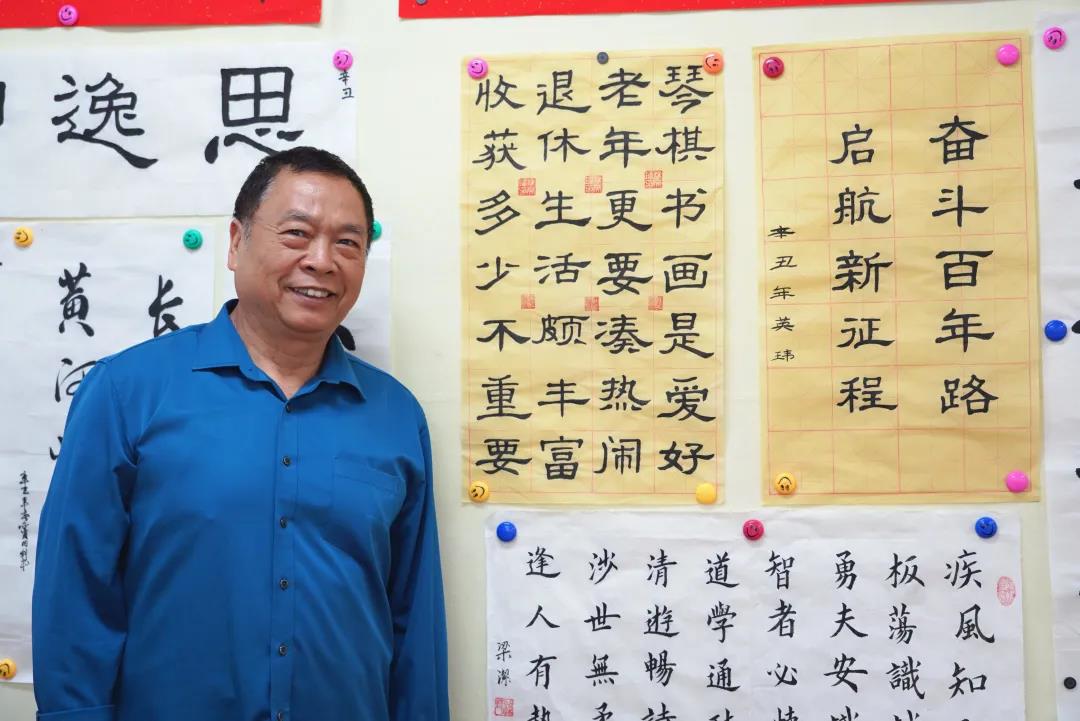 思逸
辛丑
长
黄河
琴棋书画是爱好
老年更要凑热闹
退休生活颇丰富
收获多少不重要
奋斗百年路
启航新征程
辛丑年英玮
疾風知
板蕩識
勇夫安
智者必
道學通
清遊暢
沙世無
逢人有
梁潔